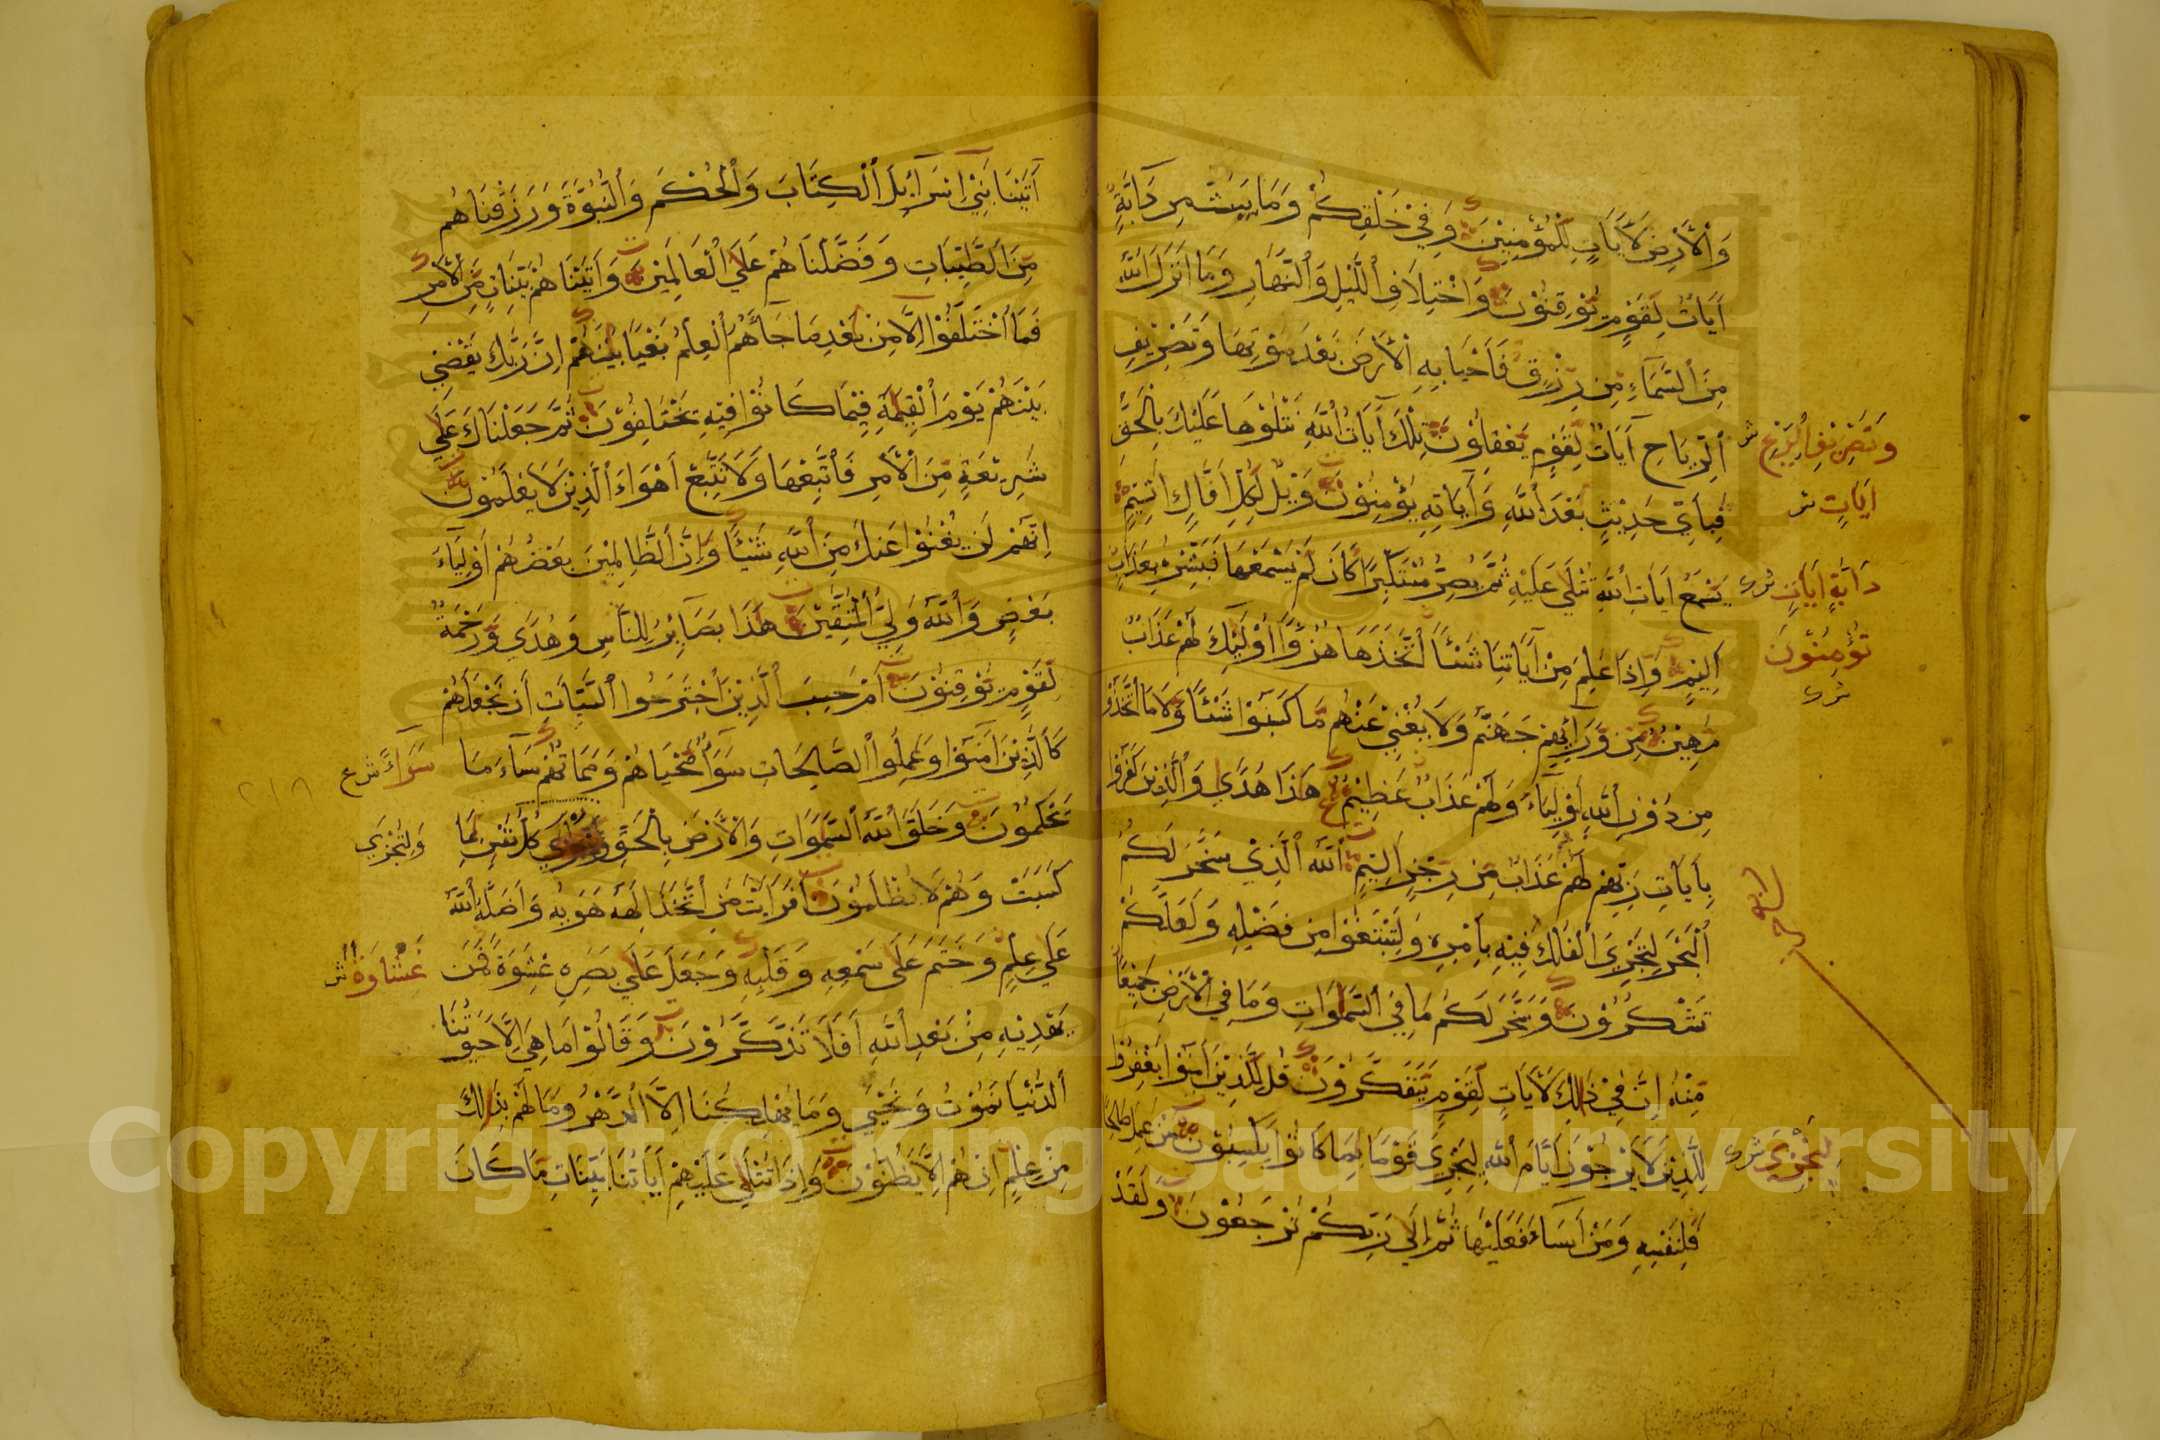 وَٱلْأَرْضِ لَآيَاتٍ لِلْمُؤْمِنِيْنَ وَفِيْ خَلْقِكُمْ وَمَا يَبُثُّ مِن دَآبَّةٍ
آيَاتٌ لِقَوْمٍ يُوْقِنُوْنَ وَٱخْتِلَافِ ٱللَّيْلِ وَٱلنَّهَارِ وَمَا أَنْزَلَ ٱللَّهُ
مِنَ ٱلسَّمَآءِ مِن رِزْقٍ فَأَحْيَا بِهِ ٱلْأَرْضَ بَعْدَ مَوْتِهَا وَتَصْرِيْفِ
وَتَصْرِيْفِ ٱلرِّيْحِ ش
ٱلرِّيَاحِ آيَاتٌ لِقَوْمٍ يَعْقِلُوْنَ تِلْكَ آيَاتُ ٱللَّهِ نَتْلُوْهَا عَلَيْكَ بِالْحَقِّ
آيَاتٍ ش
فَبِأَيِّ حَدِيْثٍ بَعْدَ ٱللَّهِ وَآيَاتِهِ يُؤْمِنُوْنَ وَيْلٌ لِكُلِّ أَفَّاكٍ أَثِيْمٍ
دَآبَّةٍ آيَاتٍ
يَسْمَعُ آيَاتِ ٱللَّهِ تُتْلَى عَلَيْهِ ثُمَّ يُصِرُّ مُسْتَكْبِرًا كَأَن لَمْ يَسْمَعْهَا فَبَشِّرْهُ بِعَذَابٍ
تُؤْمِنُوْنَ
أَلِيْمٍ وَإِذَا عَلِمَ مِنْ آيَاتِنَا شَيْئًا ٱتَّخَذَهَا هُزُوًا أُوْلَئِكَ لَهُمْ عَذَابٌ
مُهِيْنٌ مِن وَرَائِهِمْ جَهَنَّمُ وَلَا يُغْنِيْ عَنْهُم مَا كَسَبُوْا شَيْئًا وَلَا مَا ٱتَّخَذُوْا
مِن دُوْنِ ٱللَّهِ أَوْلِيَآءَ وَلَهُمْ عَذَابٌ عَظِيْمٌ هَذَا هُدًى وَٱلَّذِيْنَ كَفَرُوْا
بِآيَاتِ رَبِّهِمْ لَهُمْ عَذَابٌ مِن رِجْزٍ أَلِيْمٍ ٱللَّهُ ٱلَّذِيْ سَخَّرَ لَكُمُ
ٱلْبَحْرَ لِتَجْرِيَ ٱلْفُلْكُ فِيْهِ بِأَمْرِهِ وَلِتَبْتَغُوْا مِن فَضْلِهِ وَلَعَلَّكُمْ
تَشْكُرُوْنَ وَسَخَّرَ لَكُم مَا فِي ٱلسَّمَوَاتِ وَمَا فِي ٱلْأَرْضِ جَمِيْعًا
مِنْهُ إِنَّ فِيْ ذَلِكَ لَآيَاتٍ لِقَوْمٍ يَتَفَكَّرُوْنَ قُل لِلَّذِيْنَ آمَنُوْا يَغْفِرُوْا
لِلَّذِيْنَ لَا يَرْجُوْنَ أَيَّامَ ٱللَّهِ لِيَجْزِيَ قَوْمًا بِمَا كَانُوْا يَكْسِبُوْنَ مَنْ عَمِلَ صَالِحًا
لِنَجْزِيَ
فَلِنَفْسِهِ وَمَنْ أَسَآءَ فَعَلَيْهَا ثُمَّ إِلَى رَبِّكُمْ تُرْجَعُوْنَ وَلَقَدْ
آتَيْنَا بَنِيْ إِسْرَآئِيْلَ ٱلْكِتَابَ وَٱلْحُكْمَ وَٱلنُّبُوَّةَ وَرَزَقْنَاهُم
مِنَ ٱلطَّيِّبَاتِ وَفَضَّلْنَاهُمْ عَلَى ٱلْعَالَمِيْنَ وَآتَيْنَاهُمْ بَيِّنَاتٍ مِنَ ٱلْأَمْرِ
فَمَا ٱخْتَلَفُوْا إِلَّا مِنْ بَعْدِ مَا جَآءَهُمُ ٱلْعِلْمُ بَغْيًا بَيْنَهُمْ إِنَّ رَبَّكَ يَقْضِيْ
بَيْنَهُمْ يَوْمَ ٱلْقِيٰمَةِ فِيْمَا كَانُوْا فِيْهِ يَخْتَلِفُوْنَ ثُمَّ جَعَلْنَاكَ عَلَى
شَرِيْعَةٍ مِنَ ٱلْأَمْرِ فَٱتَّبِعْهَا وَلَا تَتَّبِعْ أَهْوَآءَ ٱلَّذِيْنَ لَا يَعْلَمُوْنَ
إِنَّهُمْ لَن يُغْنُوْا عَنْكَ مِنَ ٱللَّهِ شَيْئًا وَإِنَّ ٱلظَّالِمِيْنَ بَعْضُهُمْ أَوْلِيَآءُ
بَعْضٍ وَٱللَّهُ وَلِيُّ ٱلْمُتَّقِيْنَ هَذَا بَصَآئِرُ لِلنَّاسِ وَهُدًى وَرَحْمَةٌ
لِقَوْمٍ يُوْقِنُوْنَ أَمْ حَسِبَ ٱلَّذِيْنَ ٱجْتَرَحُوا ٱلسَّيِّئَاتِ أَن نَجْعَلَهُمْ
كَٱلَّذِيْنَ آمَنُوْا وَعَمِلُوا ٱلصَّالِحَاتِ سَوَآءٌ مَحْيَاهُمْ وَمَمَاتُهُمْ سَآءَ مَا
سَوَآءً ش ع
٢١٨
يَحْكُمُوْنَ وَخَلَقَ ٱللَّهُ ٱلسَّمَوَاتِ وَٱلْأَرْضَ بِالْحَقِّ وَلِتُجْزَى كُلُّ نَفْسٍ بِمَا
وَلِتُجْزَى
كَسَبَتْ وَهُمْ لَا يُظْلَمُوْنَ أَفَرَأَيْتَ مَنِ ٱتَّخَذَ إِلَهَهُ هَوَيهُ وَأَضَلَّهُ ٱللَّهُ
عَلَى عِلْمٍ وَخَتَمَ عَلَى سَمْعِهِ وَقَلْبِهِ وَجَعَلَ عَلَى بَصَرِهِ غِشْوَةً فَمَن
غِشَاوَةً ش
يَهْدِيْهِ مِنْ بَعْدِ ٱللَّهِ أَفَلَا تَذَكَّرُوْنَ وَقَالُوْا مَا هِيَ إِلَّا حَيَوتُنَا
ٱلدُّنْيَا نَمُوْتُ وَنَحْيَى وَمَا يُهْلِكُنَا إِلَّا ٱلدَّهْرُ وَمَا لَهُمْ بِذَلِكَ
مِنْ عِلْمٍ إِنْ هُمْ إِلَّا يَظُنُّوْنَ وَإِذَا تُتْلَى عَلَيْهِمْ آيَاتُنَا بَيِّنَاتٍ مَا كَانَ
Copyright © King Saud University